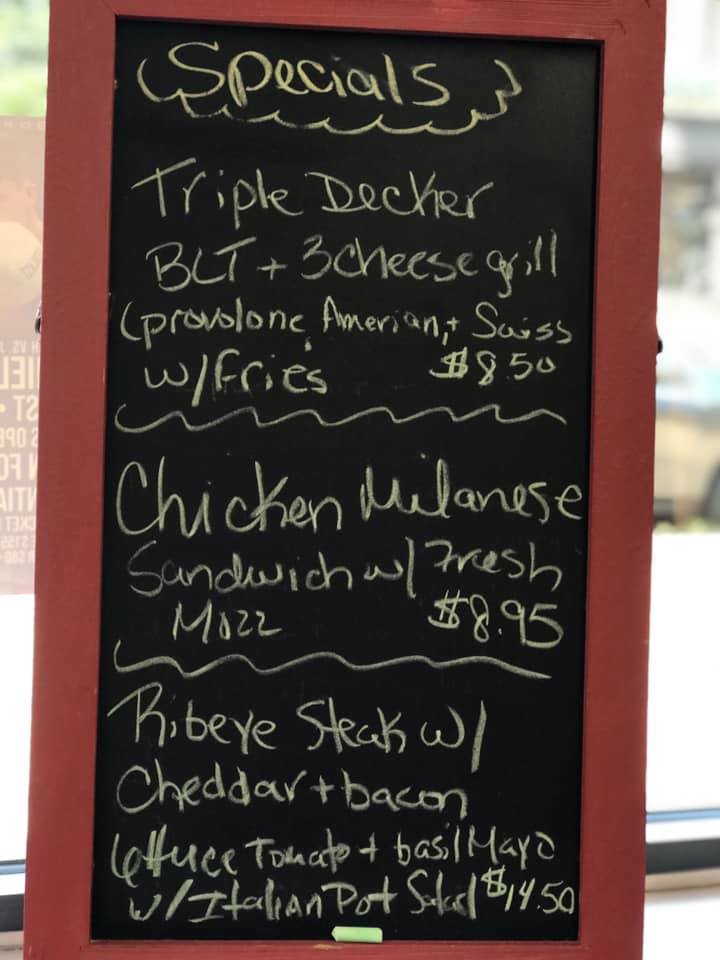 Specials
Triple Decker
BLT + 3 cheese grill
(provolone, Amerian, + Swiss
w/Fries $8.50
Chicken Milanese
Sandwich w/ Fresh
Mozz $8.95
Ribeye Steak w/
Cheddar + bacon
Lettuce Tomato + basil Mayo
w/Italian Pot Salad $14.50